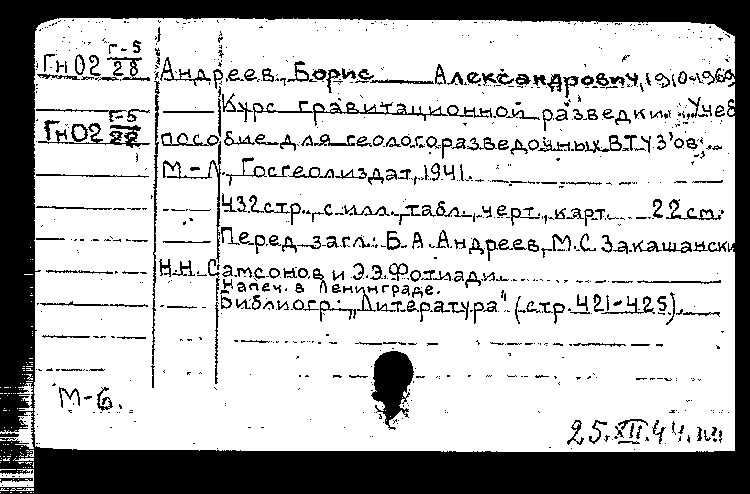 Г-5
ГнО2 28 Андреев, Борис Александрович, 1910-1969
Курс гравитационной разведки. Учеб
Г-5
ГнО2 22 пособие для геологоразведочных ВТУЗ'ов.
М.-Л., Госгеолиздат, 1941.
432 стр., с илл., табл., черт., карт. 22 см.
Перед загл.: Б.А. Андреев, М.С. Закашански
Н.Н. Самсонов и Э.Э. Фотиади.
Напеч. в Ленинграде.
Библиогр.: „Литература" (стр. 421-425).
М-6.
25.XII.44.